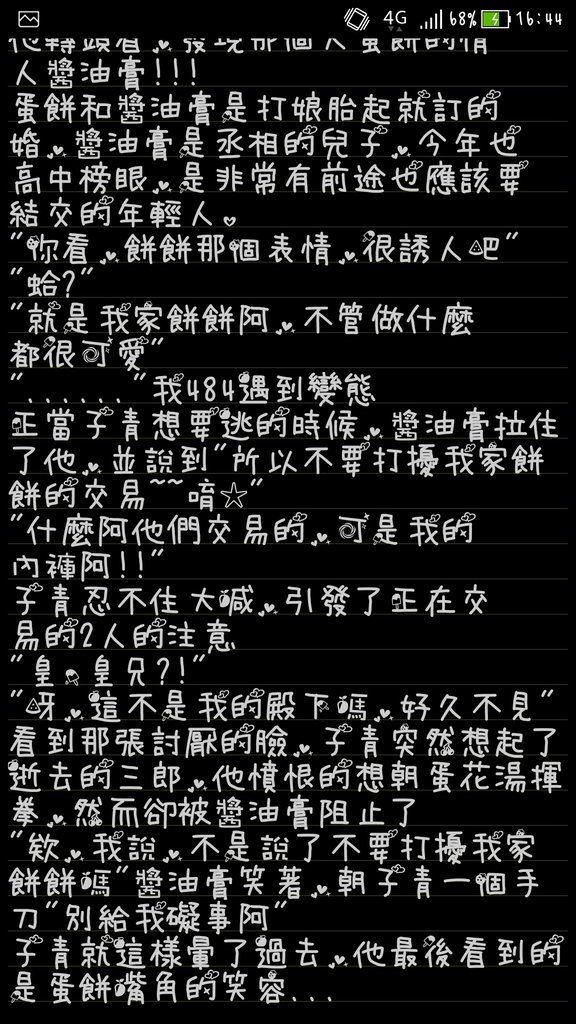 4G 68% 16:44
他轉頭看，發現那個人蛋餅的情
人醬油膏!!!
蛋餅和醬油膏是打娘胎起就訂的
婚，醬油膏是丞相的兒子，今年也
高中榜眼，是非常有前途也應該要
結交的年輕人。
"你看，餅餅那個表情，很誘人吧"
"蛤?"
"就是我家餅餅阿，不管做什麼
都很可愛"
"......"我484遇到變態
正當子青想要逃的時候，醬油膏拉住
了他，並說到"所以不要打擾我家餅
餅的交易~~唷☆"
"什麼阿他們交易的，可是我的
內褲阿!!"
子青忍不住大喊，引發了正在交
易的2人的注意
"皇、皇兄?!"
"呀，這不是我的殿下嗎，好久不見"
看到那張討厭的臉，子青突然想起了
逝去的三郎，他憤恨的想朝蛋花湯揮
拳，然而卻被醬油膏阻止了
"欸，我說，不是說了不要打擾我家
餅餅嗎"醬油膏笑著，朝子青一個手
刀"別給我礙事阿"
子青就這樣暈了過去，他最後看到的
是蛋餅嘴角的笑容...